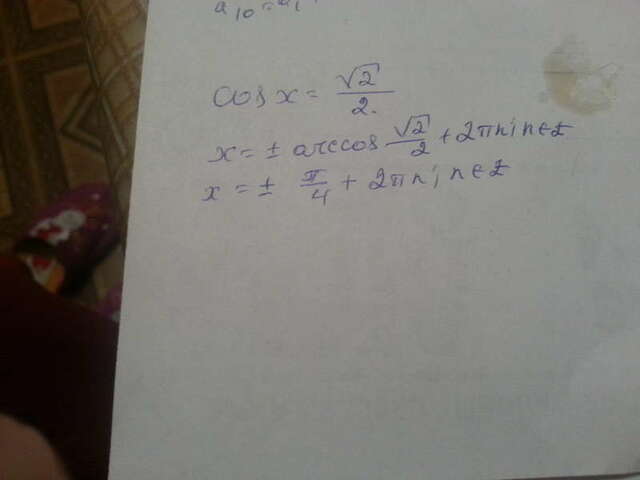 a₁₀ = a₁
cos x = √2/2.
x = ± arccos √2/2 + 2πn; n ∈ Z
x = ± π/4 + 2πn; n ∈ Z